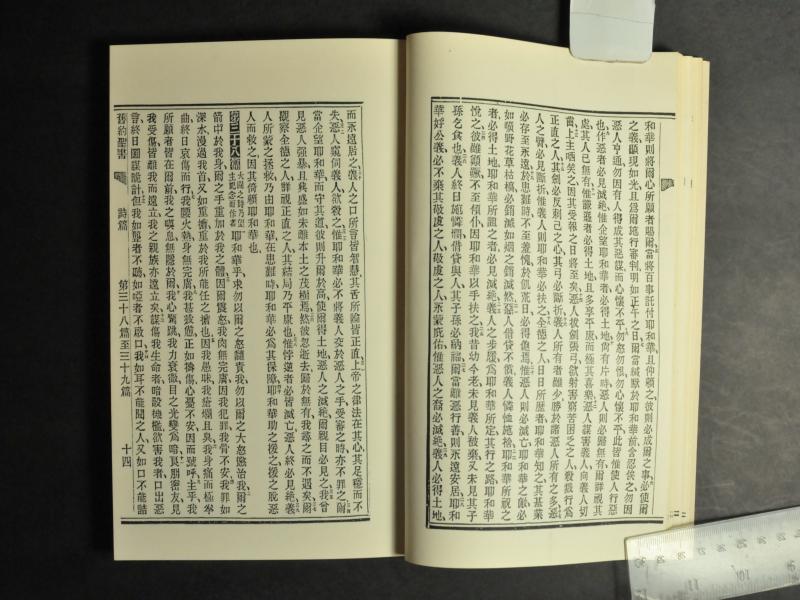 和華則將爾心所願者賜爾當將百事託付耶和華且仰賴之彼則必成爾之事必使爾
之義顯現如光且爲爾施行審判明如正午之日爾當緘默於耶和華前含忍俟之勿因
惡人亨通勿因有人得成其惡謀而心懷不平勿怒勿恨勿心懷不平此皆惟使人行惡
也作惡者必見滅絕惟企望耶和華者必得土地尚有片時惡人則必歸無有爾詳視其
處其人已無有惟謙遜者必得土地且多享平康而極其喜樂惡人謀害義人向義人切
齒上主哂笑之因其受報之日將至矣惡人拔劍張弓欲射害窮苦困乏之人殺戮行爲
正直之人其劍必反刺己之心其弓必斷折義人所有者雖少勝於諸惡人所有之多惡
人之臂必見斷折惟義人則耶和華必扶之全德之人日日所歷者耶和華知之其基業
必存至永遠於患難時不至羞愧於飢荒日必得飽惟惡人則必滅亡耶和華之敵必
如曠野花草枯槁必銷滅如烟之銷滅然惡人借貸不償義人憐恤施捨耶和華所祝之
者必得土地耶和華所詛之者必見滅絕義人之步履爲耶和華所定其行之路耶和華
悅之彼雖顚蹶不至傾仆因耶和華以手扶之我昔幼今老未見義人被棄又未見其子
孫乞食也義人終日施憐憫借貸與人其子孫必納福爾當離惡行善則永遠安居耶和
華好公義必不棄其敬虔之人敬虔之人永蒙庇佑惟惡人之裔必滅絕義人必得土地
而永遠居之義人之口所言皆智慧其舌所論皆正直上帝之律法在其心其足履而不
失惡人窺伺義人欲殺之惟耶和華必不將義人交於惡人之手受審之時亦不罪之爾
當企望耶和華而守其道彼則升爾於高使爾得土地惡人之滅絕爾親目必見之我曾
見惡人强暴且興盛如未離本土之茂樹焉然彼忽去歸於無有我尋之而不遇矣爾
觀察全德之人詳視正直之人其結局乃平康也惟悖逆者必皆滅亡惡人終必見絕義
人所蒙之拯救乃由耶和華在患難時耶和華必爲其保障耶和華助之援之援之脫惡
人而救之因其倚賴耶和華也
第三十八篇 大闢之詩乃望主記念而作者 耶和華乎求勿以爾之怒譴責我勿以爾之大怒懲治我爾之
箭中於我身爾之手重加於我之體因爾震怒我肉無完膚因我犯罪我骨不安我罪如
深水漫過我首又如重擔重於我所能任之擔也因我愚昧我瘡爛且臭我身痛而極拳
曲終日哀傷而行我腰火熱身無完膚我甚疲憊正如擣傷心憂不安因而號呼主乎我
所願者皆在爾前我之嘆息無隱於爾我心驚跳我力衰微目之光變爲暗我朋密友見
我受傷皆離我而遠立我之親族亦遠立矣謀傷我生命者暗設機檻欲害我者口出惡
言終日圖謀詭計但我如聾者不聽如啞者不啟口我如耳不能聞之人又如口不能詰
舊約聖書
詩篇
第三十八篇至三十九篇
十四